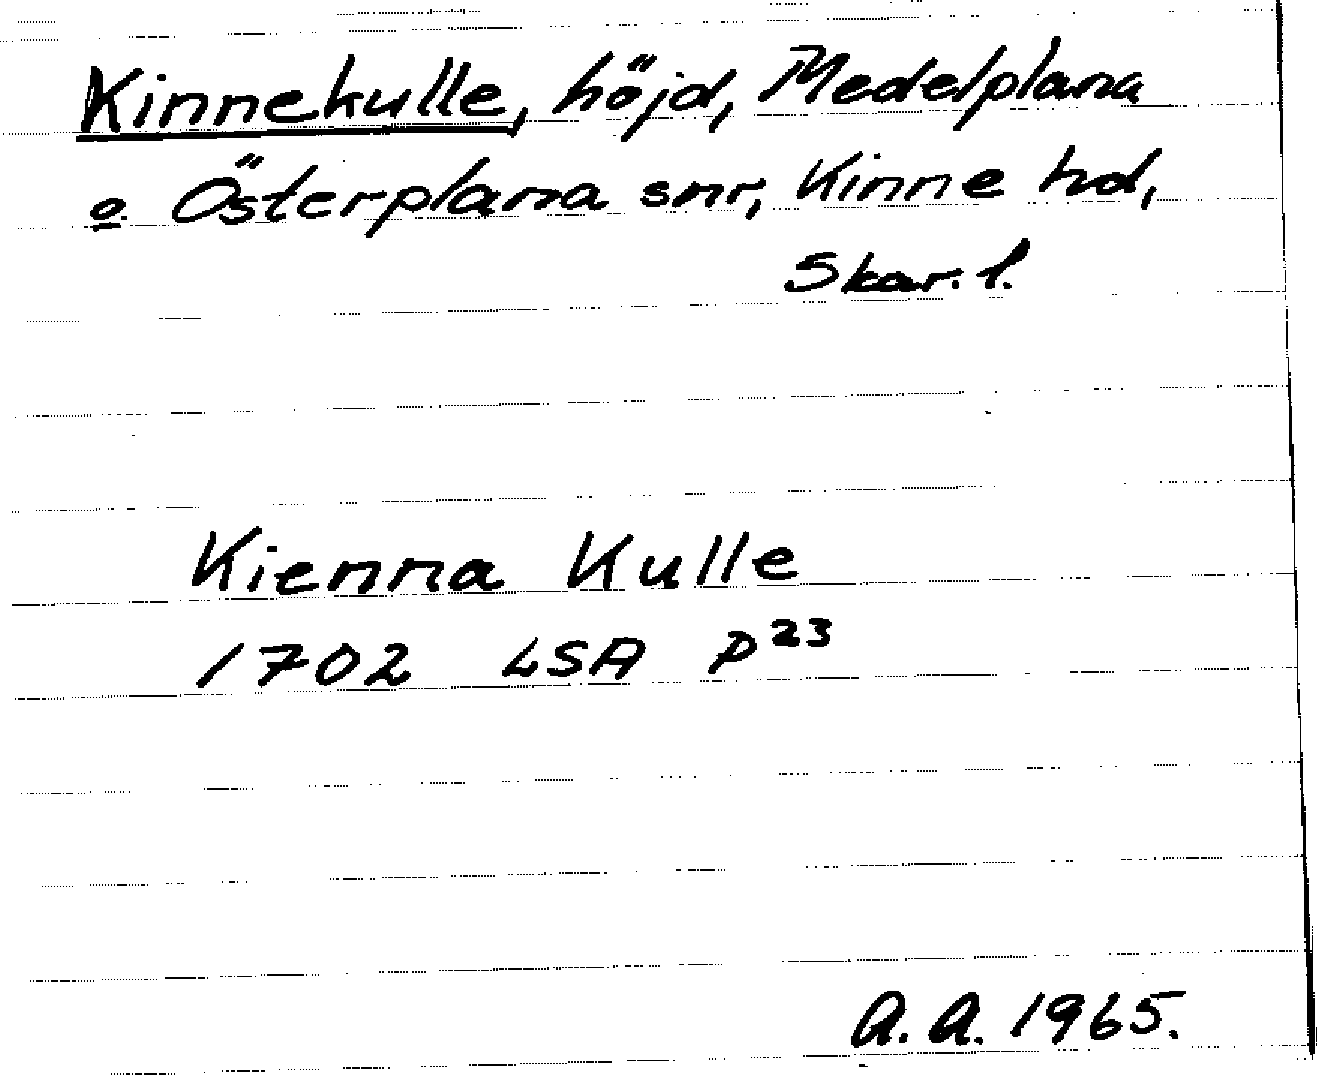 Kinnekulle, höjd, Medelplana
o Österplana snr, Kinne hd,
Skar. l.
Kienna Kulle
1702 LSA P23
A. A. 1965.